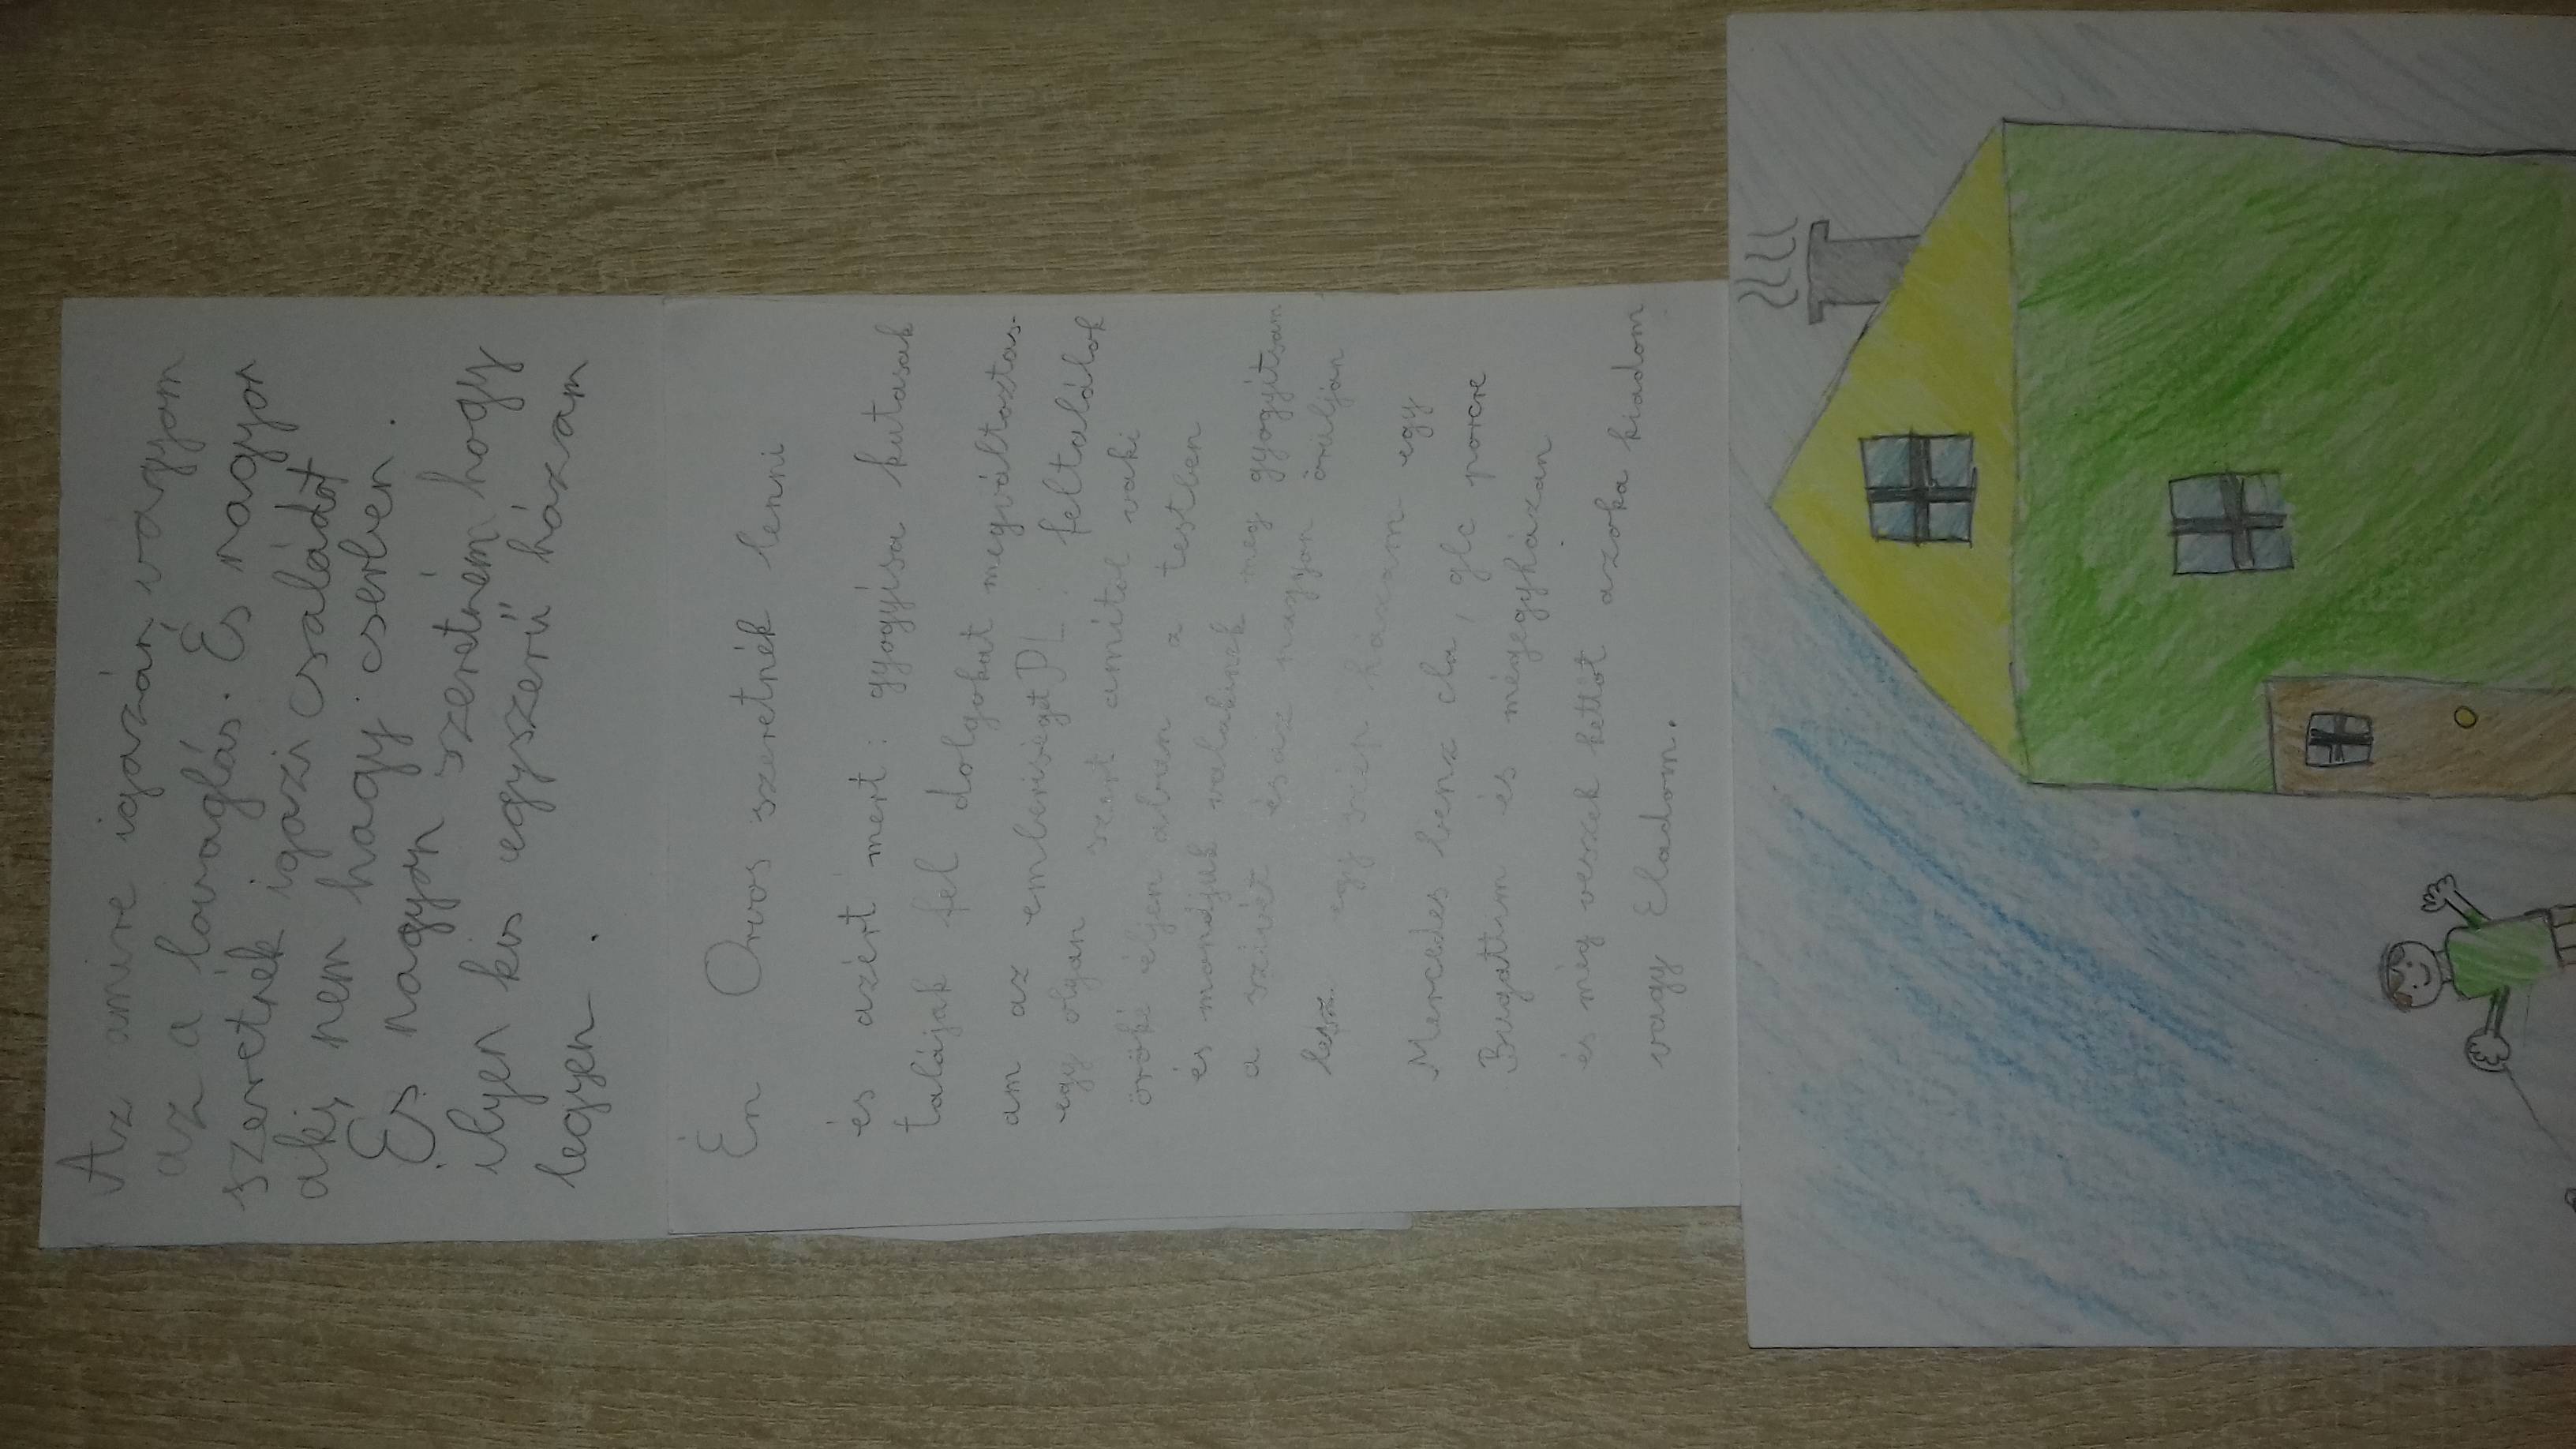 Az amire igazán vágyom
az a lovaglás. És nagyon
szeretnék igazi családot
aki, nem hagy cserben.
És nagyon szeretném hogy
ilyen kis egyszerű házam
legyen.
Én Orvos szeretnék lenni
és azért mert: gyogyisa kutasak
talájak fel dolgokat megváltoztas-
am az emberiséget Pl.: feltalálok
egy olyan szert amitöl vaki
öröké éljen abvan a testben
és mondjuk valakinek meg gyogyitsam
a szívét ésaz nagyon örüljön
lesz egy szép házam egy
Mercedes benz cla, glc porcre
Bugattim és mégegyházan
és még veszek kettöt azoka kiadom
vagy Eladom.